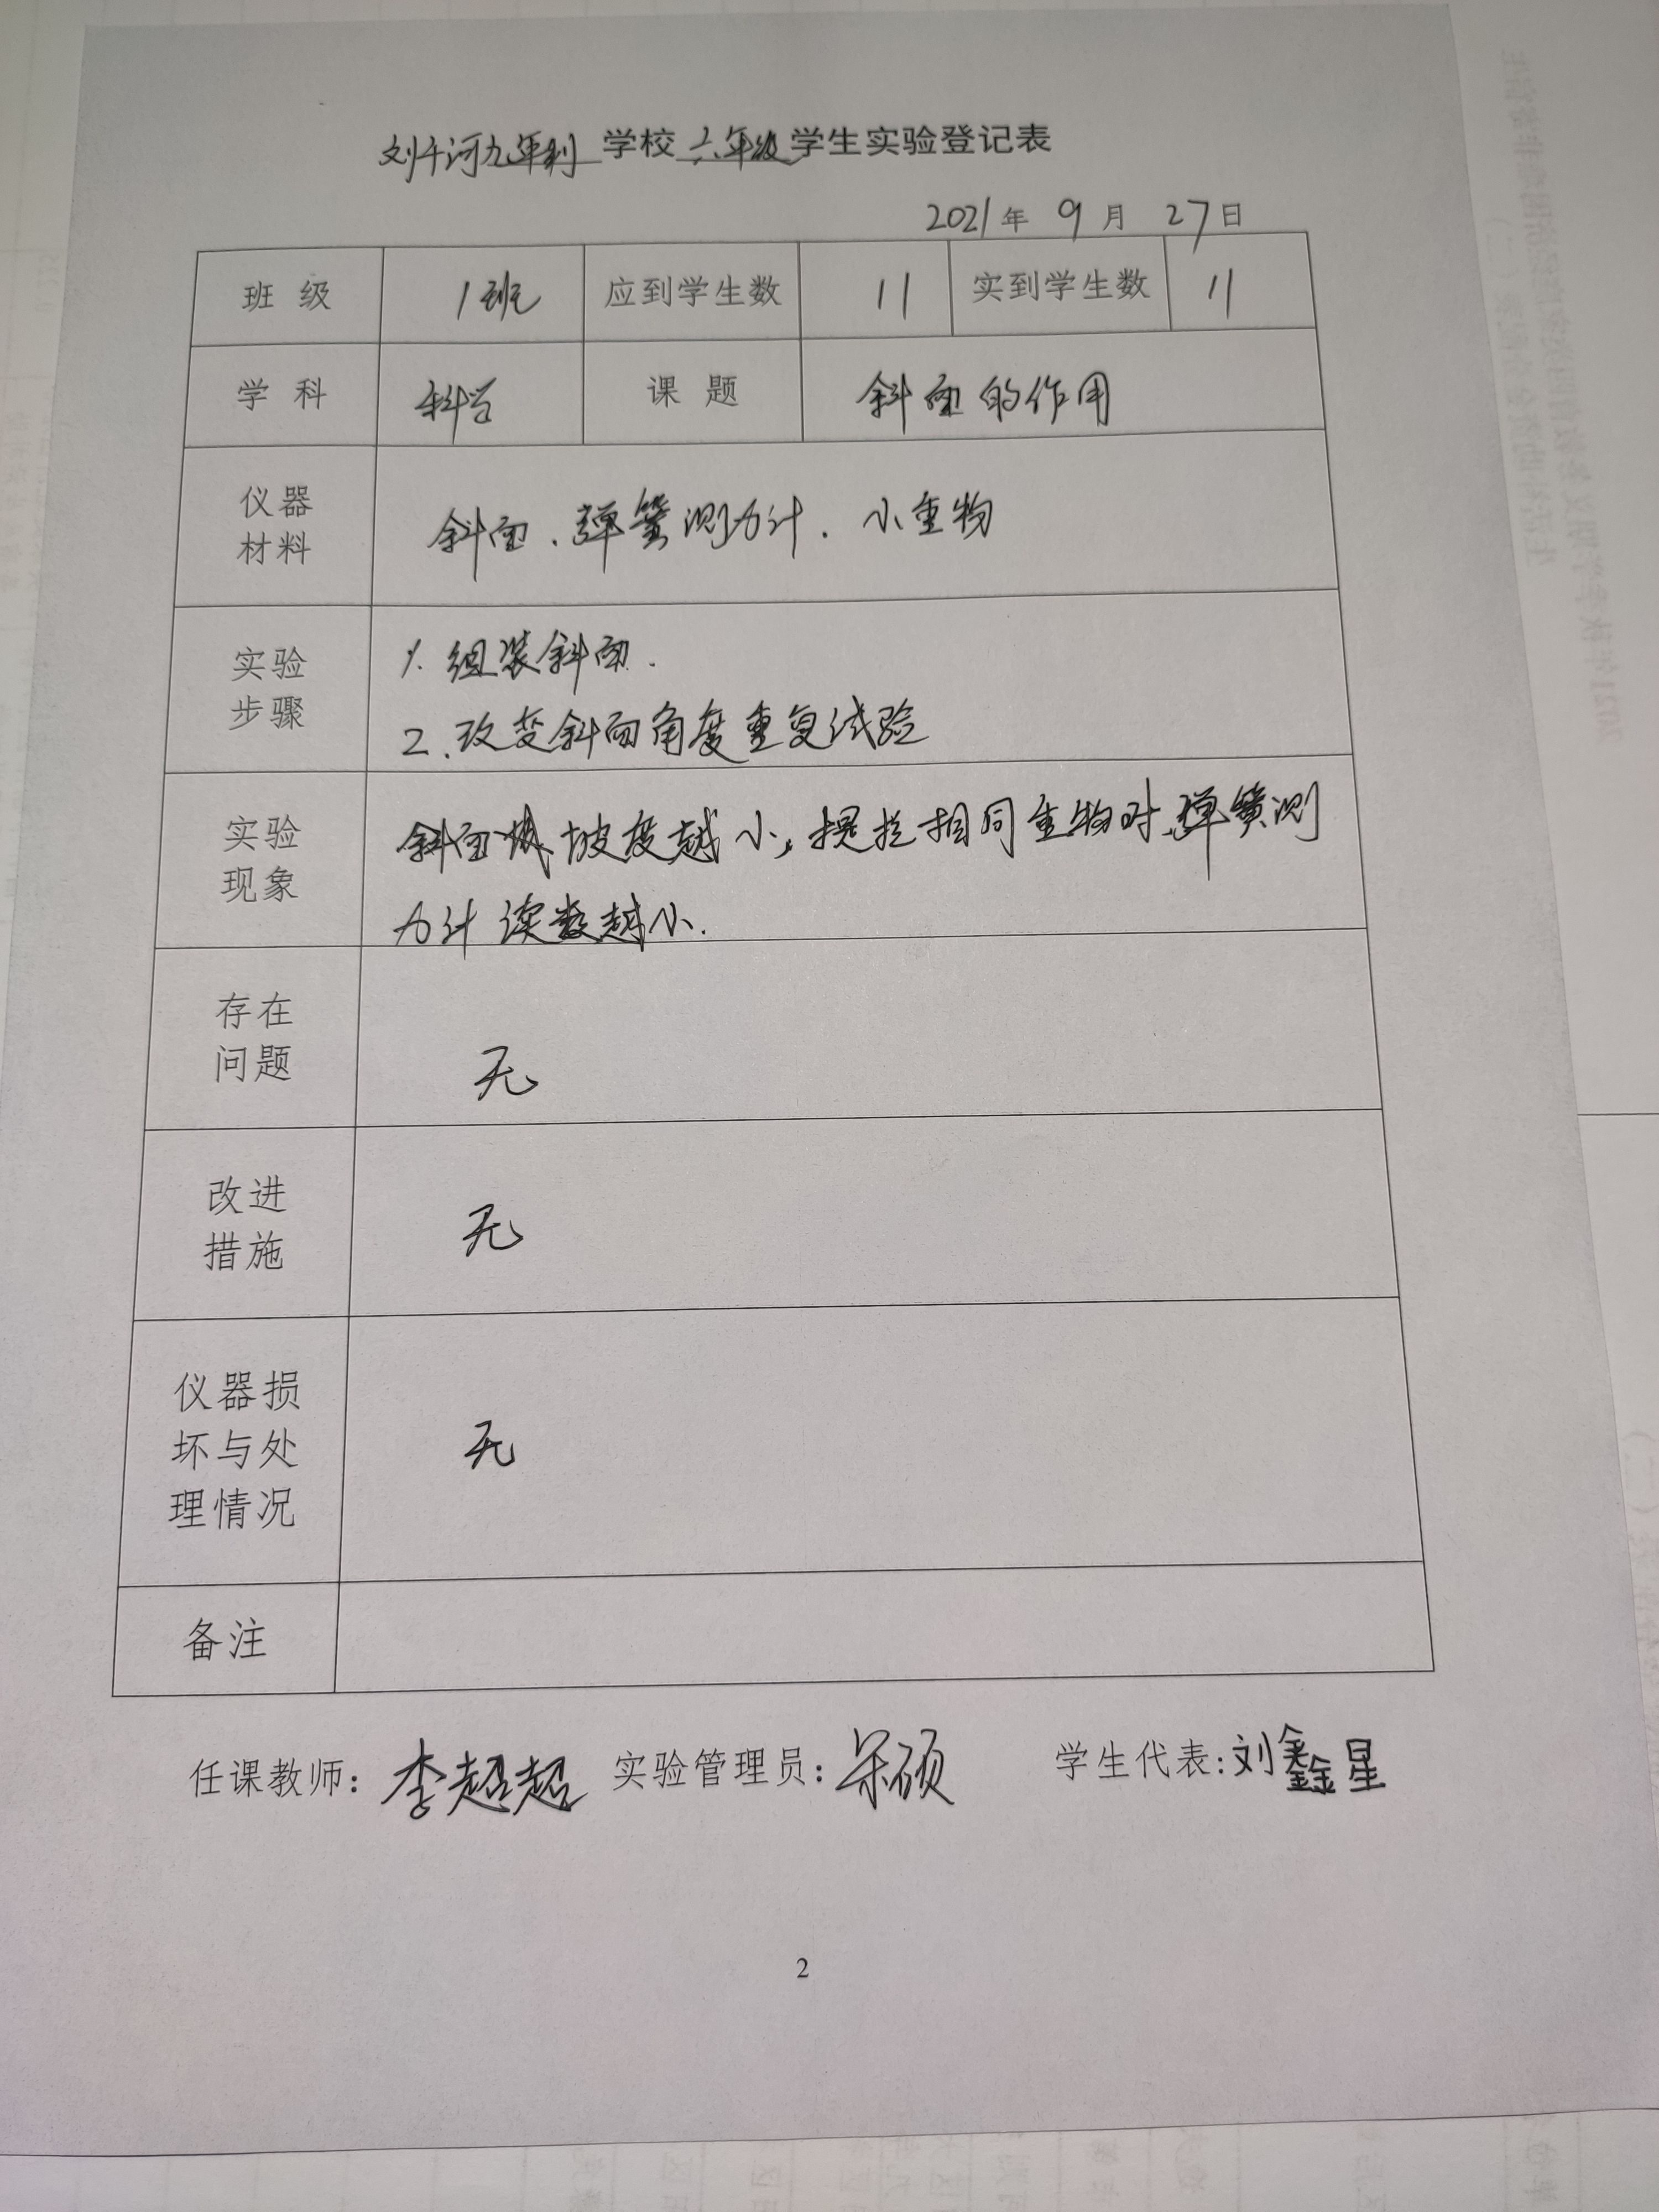 刘千河九年制学校六年级学生实验登记表
2021年 9月 27日
班 级 1班 应到学生数 11 实到学生数 11
学 科 科学 课 题 斜面的作用
仪器
材料
斜面、弹簧测力计、小重物
实验
步骤
1. 组装斜面.
2. 改变斜面角度重复试验
实验
现象
斜面坡度越小,提拉相同重物时,弹簧测
力计读数越小.
存在
问题
无
改进
措施
无
仪器损
坏与处
理情况
无
备注
任课教师:李超超 实验管理员:宋硕 学生代表:刘鑫星
2